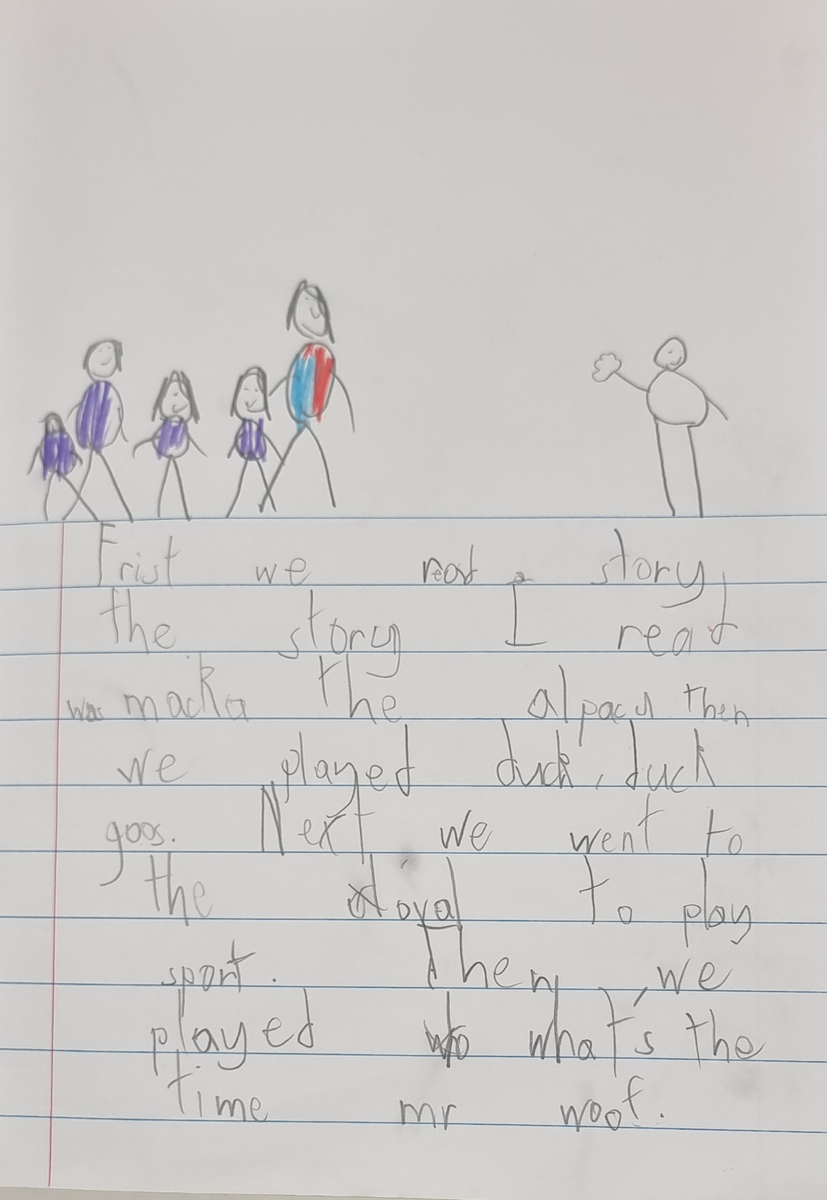 Frist we read a story,
the story I read
was macka the alpaca then
we played duck, duck
goos. Next we went to
the oval to play
sport. Then, we
played what's the
time mr woof.